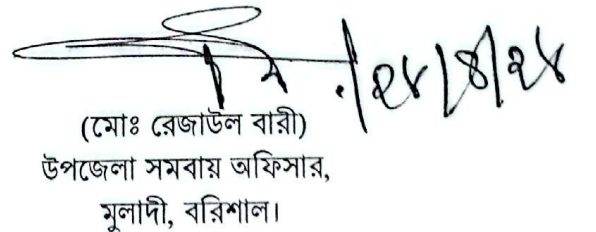 ২৪/৪/২৪
(মোঃ রেজাউল বারী)
উপজেলা সমবায় অফিসার,
মুলাদী, বরিশাল।